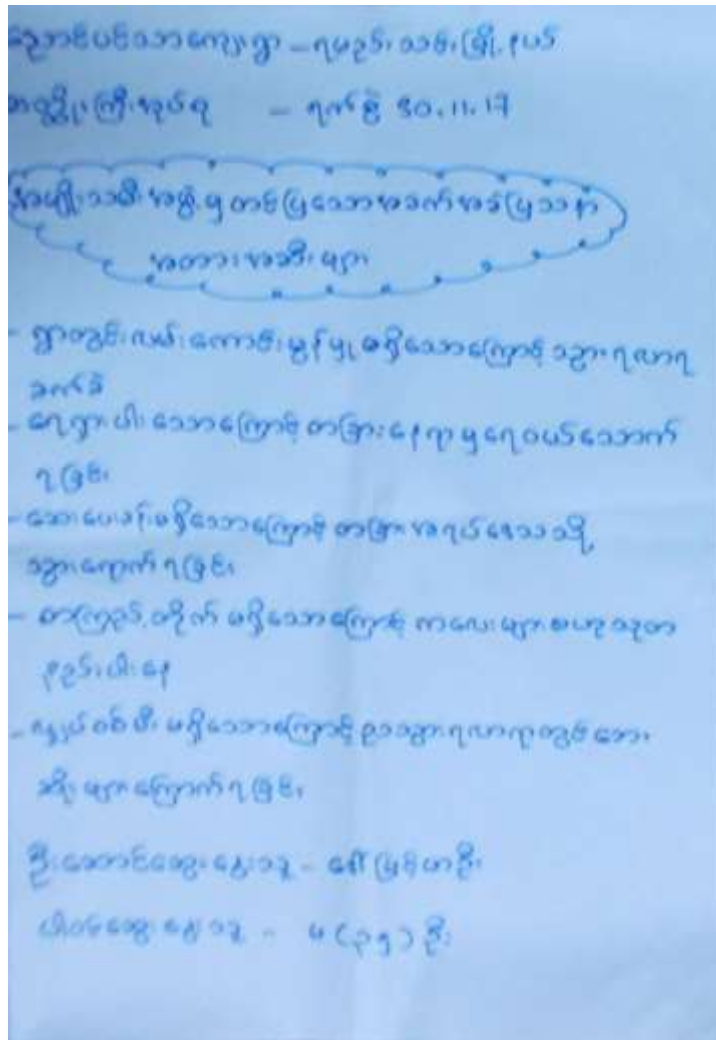 ညောင်ပင်သာကျေးရွာ – ရမည်းသင်းမြို့နယ်
ကြီးအုပ်စု – ရက်စွဲ 30.11.17
အမျိုးသမီးအဖွဲ့မှတင်ပြသောအခက်အခဲပြဿနာ
အတားအဆီးများ
- ရွာတွင်းလမ်းကောင်းမွန်မှုမရှိသောကြောင့် သွားရလာရ
ခက်ခဲ
- ရေရှားပါးသောကြောင့် တခြားနေရာမှရေဝယ်သောက်
ရခြင်း
- ဆေးပေးခန်းမရှိသောကြောင့် တခြားအရပ်ဒေသသို့
သွားရောက်ရခြင်း
- စာကြည့်တိုက် မရှိသောကြောင့် ကလေးများဗဟုသုတ
နည်းပါးနေ
- လျှပ်စစ်မီးမရှိသောကြောင့် ညသွားရလာရာတွင်ဘေး
ဆိုးများကြောက်ရခြင်း
ဦးဆောင်ဆွေးနွေးသူ – ဒေါ်မြင့်မာဦး
ပါဝင်ဆွေးနွေးသူ – မ (၃၅) ဦး